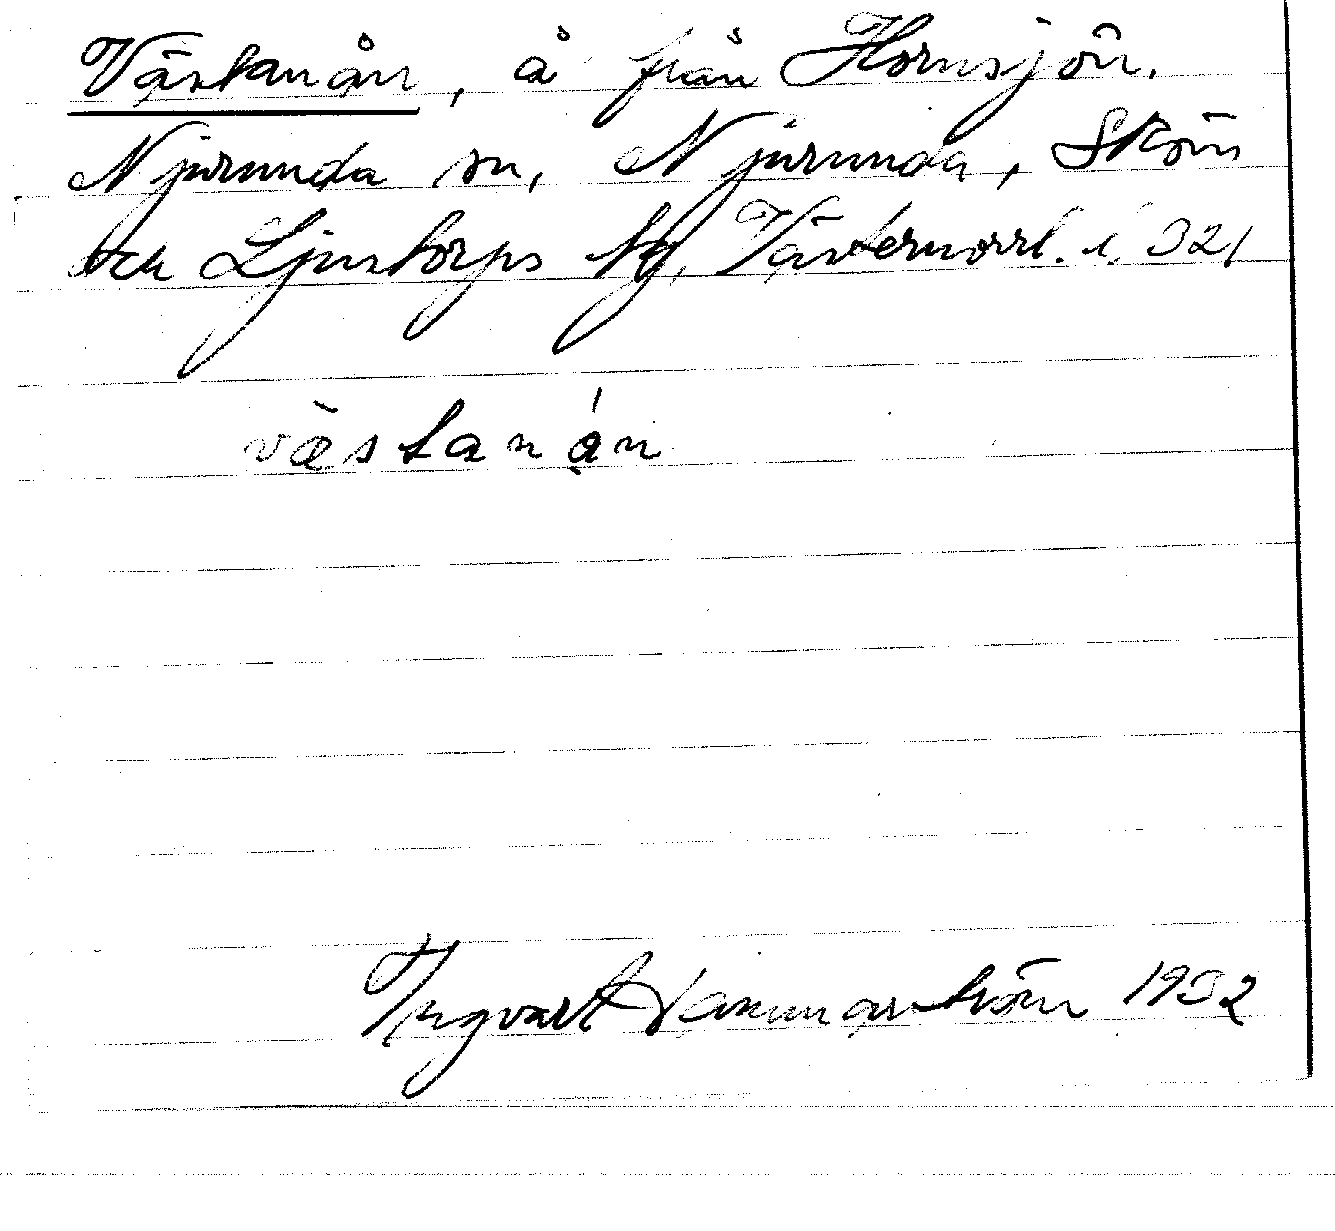 Västanån, å från Hornsjön.
Njurunda sn, Njurunda, Sköns
och Ljustorps tg, Västernorrl. l. 321
västanån
Ingvart
1932